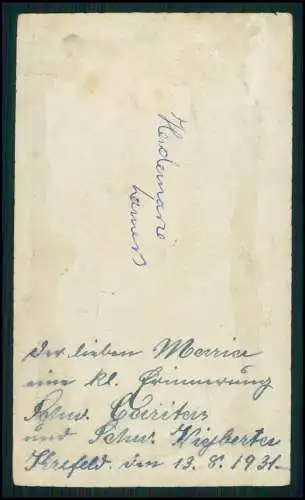 Heidemarie
Lamers
Der lieben Maria
eine kl. Erinnerung
Schw. Caritas
und Schw. Wigberta
Krefeld. den 13.8.1931.